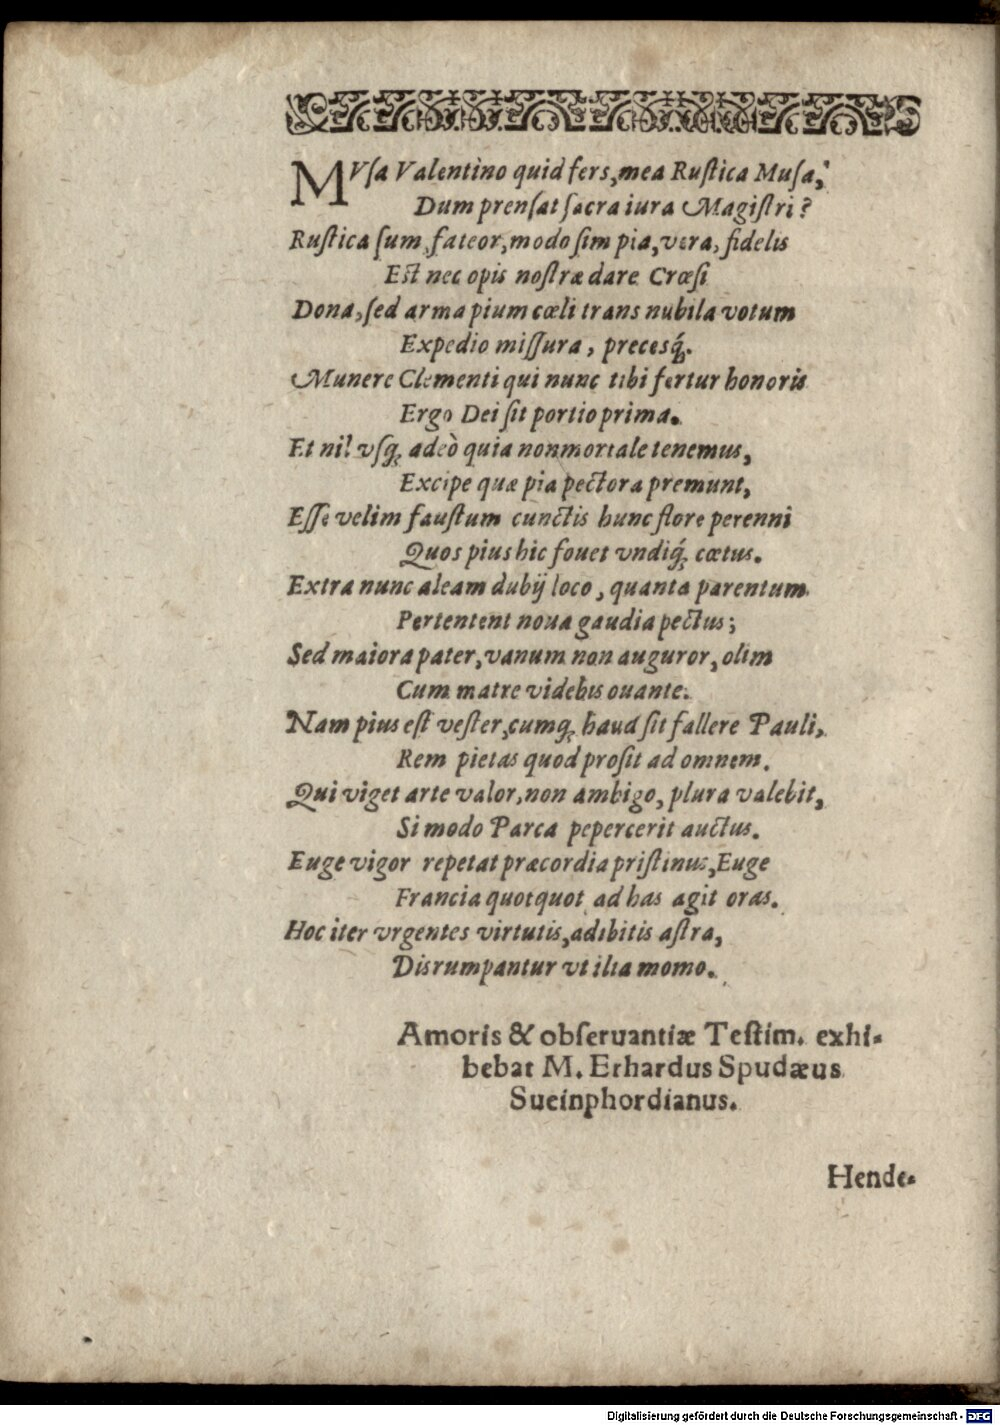 MVſa Valentino quid fers, mea Ruſtica Muſa,
Dum prenſat ſacra iura Magiſtri?
Ruſtica ſum, fateor, modo ſim pia, vera, fidelis
Est nec opis noſtræ dare Crœſi
Dona, ſed arma pium cœli trans nubila votum
Expedio miſſura, precesq́;.
Munere Clementi qui nunc tibi fertur honoris
Ergo Dei ſit portio prima.
Et nil vſq; adeò quia non mortale tenemus,
Excipe quæ pia pectora premunt,
Eſſe velim fauſtum cunctis hunc flore perenni
Quos pius hic fouet vndiq́; cœtus.
Extra nunc aleam dubij loco, quanta parentum
Pertentent noua gaudia pectus;
Sed maiora pater, vanum non auguror, olim
Cum matre videbis ouante.
Nam pius eſt veſter, cumq; haud ſit fallere Pauli,
Rem pietas quod proſit ad omnem.
Qui viget arte valor, non ambigo, plura valebit,
Si modo Parca pepercerit auctus.
Euge vigor repetat præcordia priſtinus, Euge
Francia quotquot ad has agit oras.
Hoc iter vrgentes virtutis, adibitis aſtra,
Disrumpantur vt ilia momo.
Amoris & obſeruantiæ Teſtim. exhi-
bebat M. Erhardus Spudæus
Sueinphordianus.
Hende-
Digitalisierung gefördert durch die Deutsche Forschungsgemeinschaft - DFG